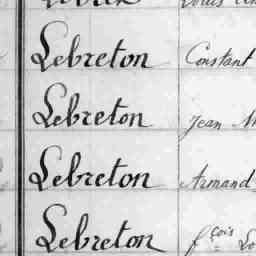 Lebreton Constant
Lebreton Jean
Lebreton Armand
Lebreton fçois